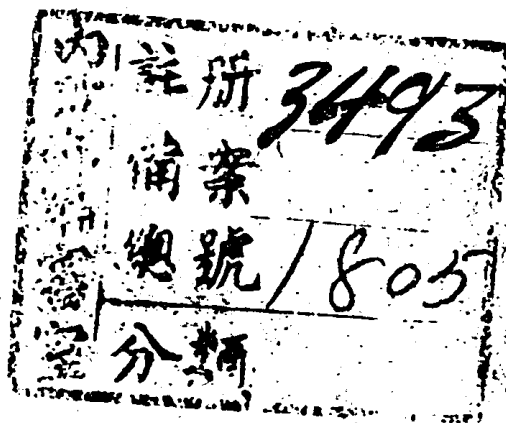 內
註册 3493
備案
總號 1805
分類